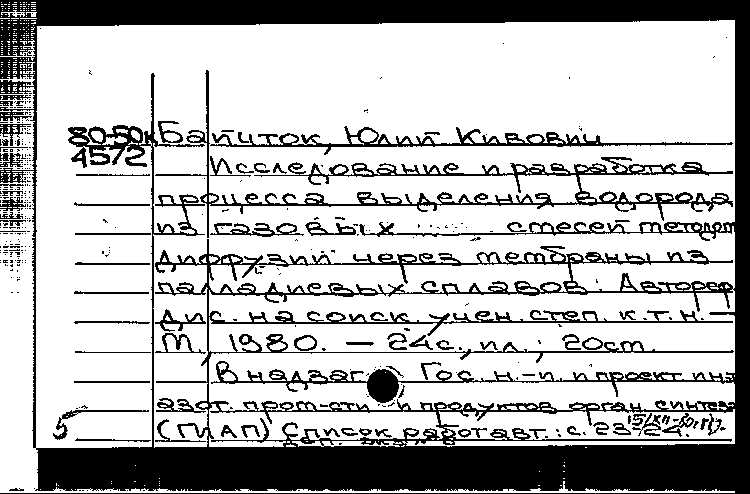 80-50к Байчток, Юлий Кивович
4572 Исследование и разработка
процесса выделения водорода
из газовых смесей методом
диффузии через мембраны из
палладиевых сплавов: Автореф.
дис. на соиск. учен. степ. к.т.н. —
М., 1980. — 24 с., ил.; 20 см.
В надзаг. Гос. н.-и. и проект. инт
азот. пром-сти и продуктов орган. синтеза
5 (ГИАП) Список работ авт.: с. 23-24.